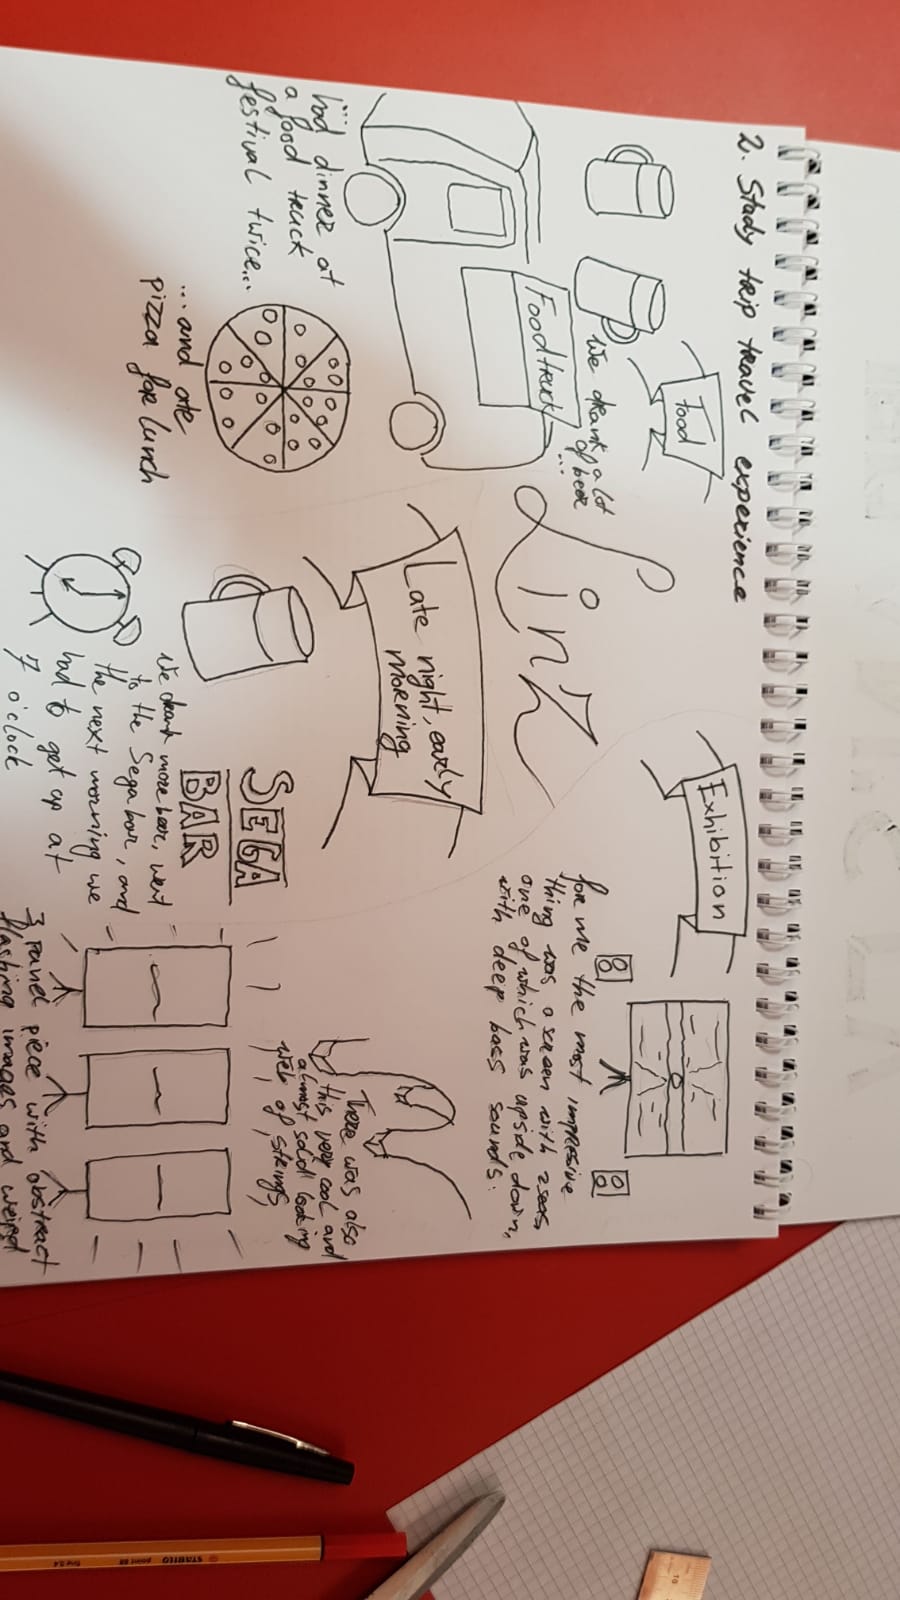 2. Study trip travel experience
Food
We drank a lot
of beer
...
Foodtruck
...
had dinner at
a food truck
festival twice...
...and ate
pizza for lunch
Linz
Late night, early
morning
SEGA
BAR
We drank more beer, went
to the Sega bar, and
the next morning we
had to get up at
7 o'clock
Exhibition
for me the most impressive
thing was a screen with 2 seas,
one of which was upside down,
with deep bass sounds.
There was also
this very cool and
almost solid looking
web of strings,
3 panel piece with abstract
flashing images and weird
STABILO point 88 fine 0.4